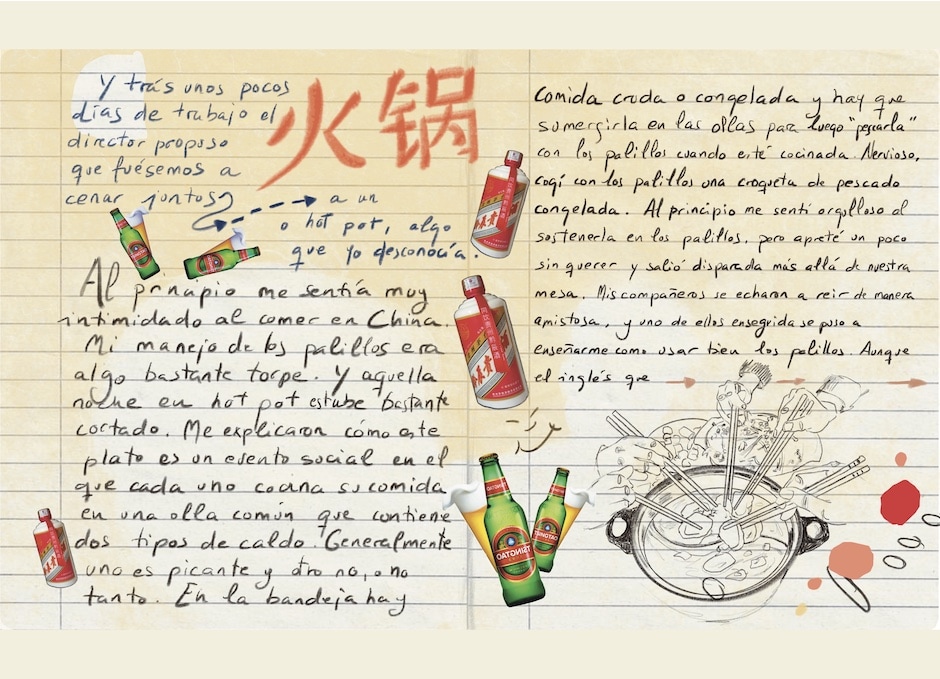 Y trás unos pocos
días de trabajo el
director propuso
que fuésemos a
cenar juntos
a un
o hot pot, algo
que yo desconocía.
火锅
Al prncipio me sentía muy
intimidado al comer en China.
Mi manejo de los palillos era
algo bastante torpe. Y aquella
noche en hot pot estube bastante
cortado. Me explicaron cómo este
plato es un evento social en el
que cada uno cocina su comida
en una olla común que contiene
dos tipos de caldo. Generalmente
uno es picante y otro no, o no
tanto. En la bandeja hay
comida cruda o congelada y hay que
sumergirla en las ollas para luego "pescarla"
con los palillos cuando esté cocinada. Nervioso,
cogí con los palillos una croqueta de pescado
congelada. Al principio me sentí orgulloso al
sostenerla en los palillos, pero apreté un poco
sin querer y salió disparada más allá de nuestra
mesa. Mis compañeros se echaron a reir de manera
amistosa, y uno de ellos enseguida se puso a
enseñarme como usar bien los palillos. Aunque
el inglés que
TSINGTAO
TSINGTAO